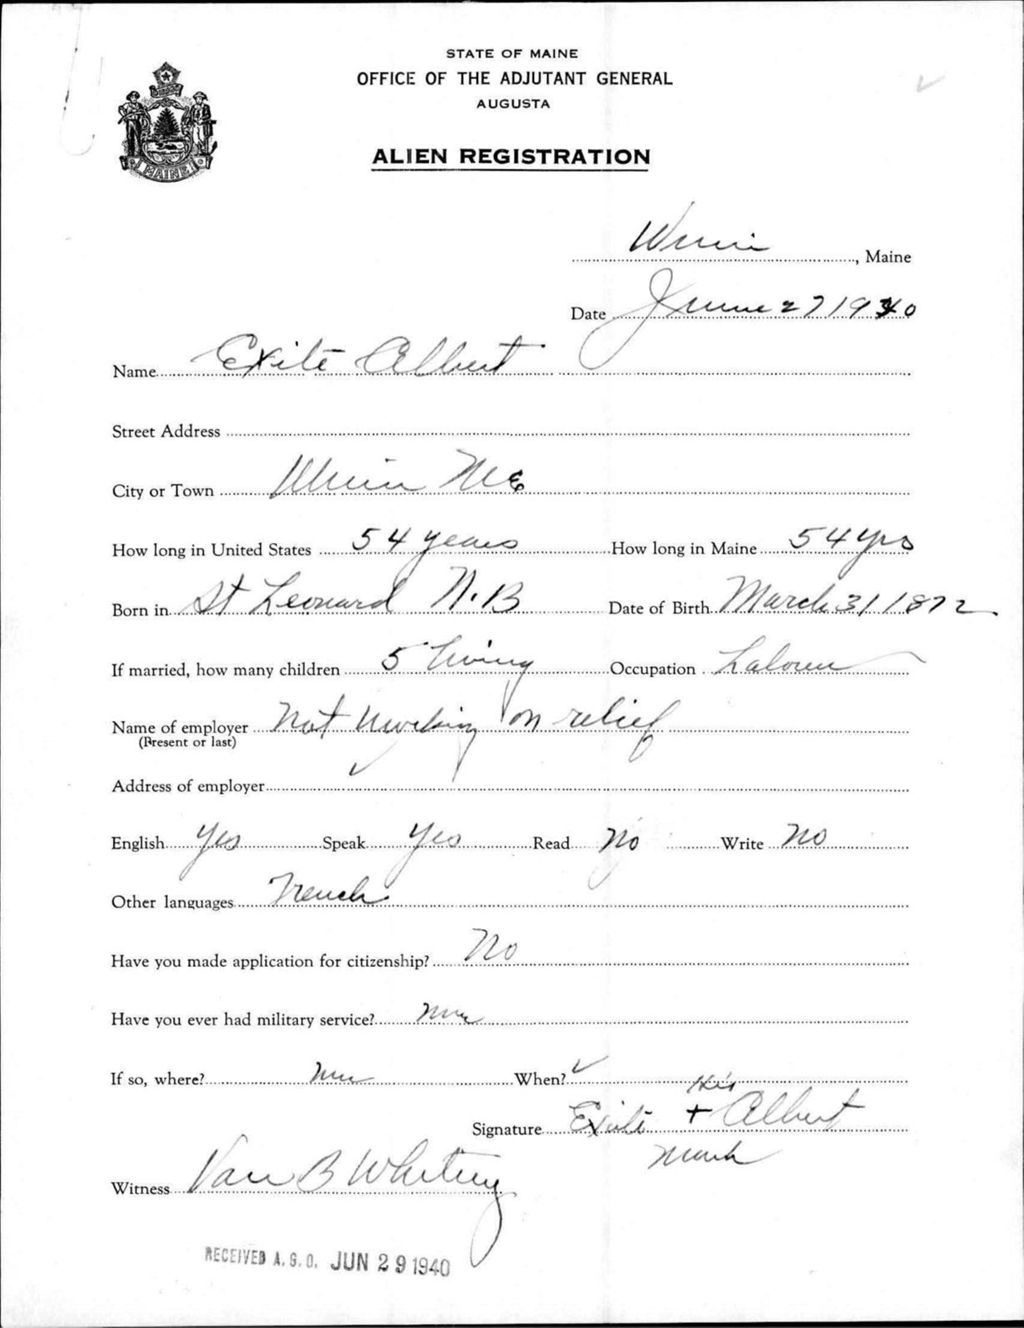 STATE OF MAINE
OFFICE OF THE ADJUTANT GENERAL
AUGUSTA
MAINE
ALIEN REGISTRATION
Winn, Maine
Date June 27 1940
Name Exite Albert
Street Address
City or Town Winn Me
How long in United States 54 years How long in Maine 54 yrs
Born in St Leonard N.B Date of Birth March 31 1872
If married, how many children 5 living Occupation Laborer
Name of employer Not working on relief
(Present or last)
Address of employer
English Yes Speak Yes Read No Write No
Other languages French
Have you made application for citizenship? No
Have you ever had military service? None
If so, where? When?
His
Signature Exite + Albert
Mark
Witness Van B Whitney
RECEIVED A.G.O. JUN 29 1940